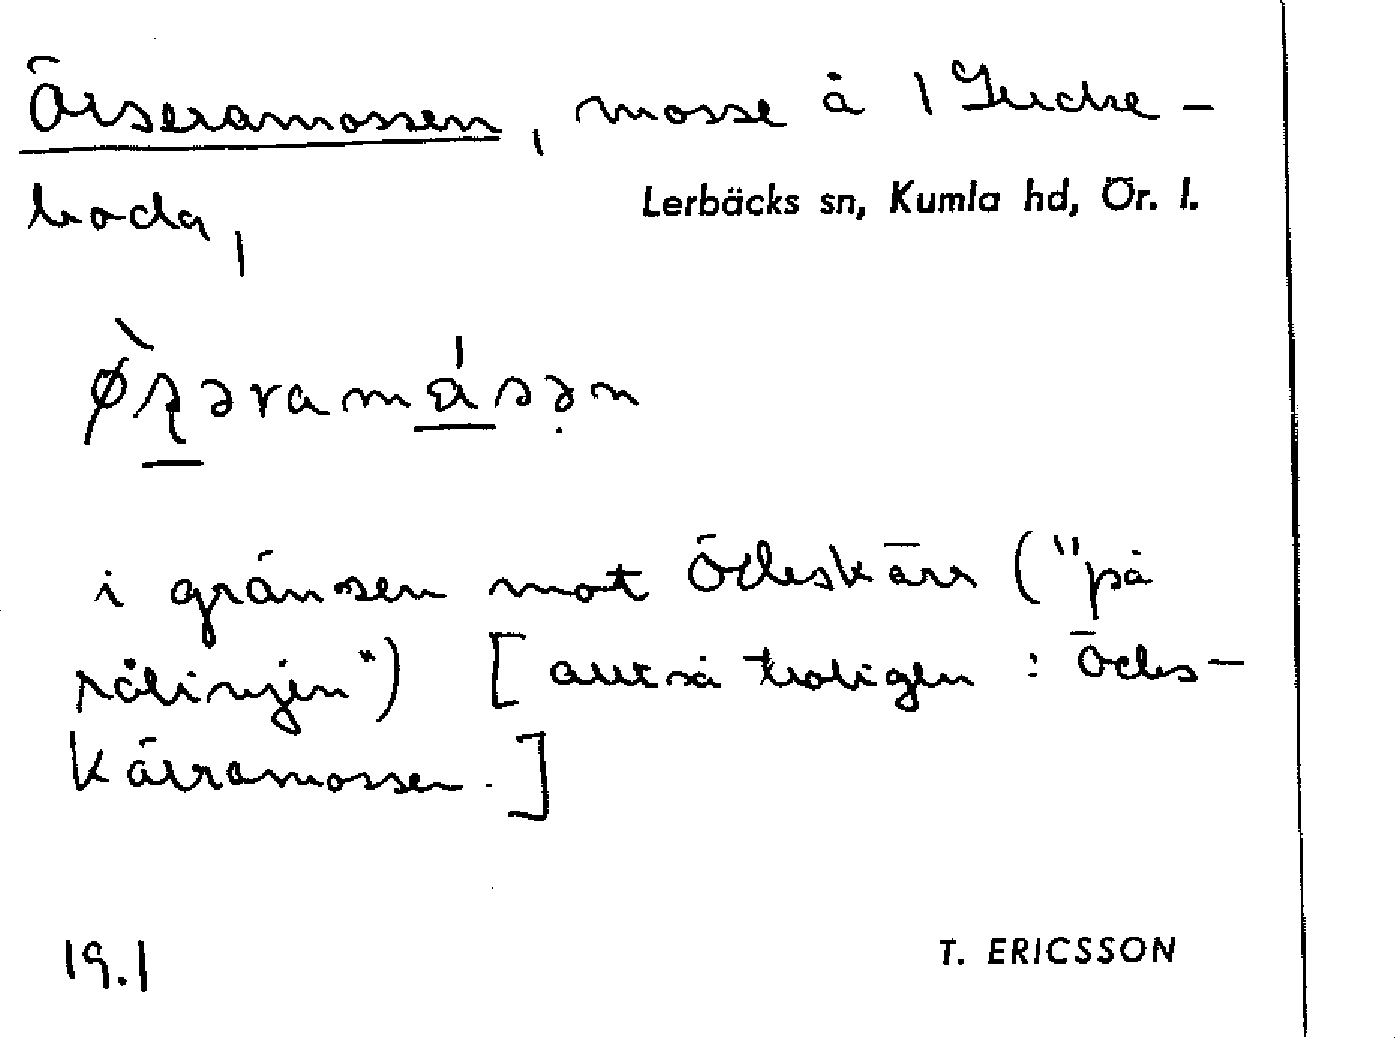 Örseramossen, mosse å 1 Ferde-
boda,
Lerbäcks sn, Kumla hd, Ör. l.
i gränsen mot Ödeskärr ("på
rålinjen") [alltså troligen : Ödes-
kärramossen.]
19.1
T. ERICSSON